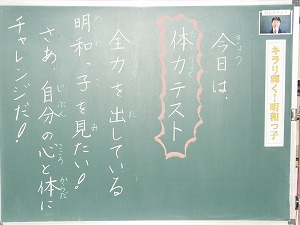 キラリ輝く！明和っ子
今日は、
体力テスト
全力を出している
明和っ子を見たい！
さあ、自分の心と体に
チャレンジだ！